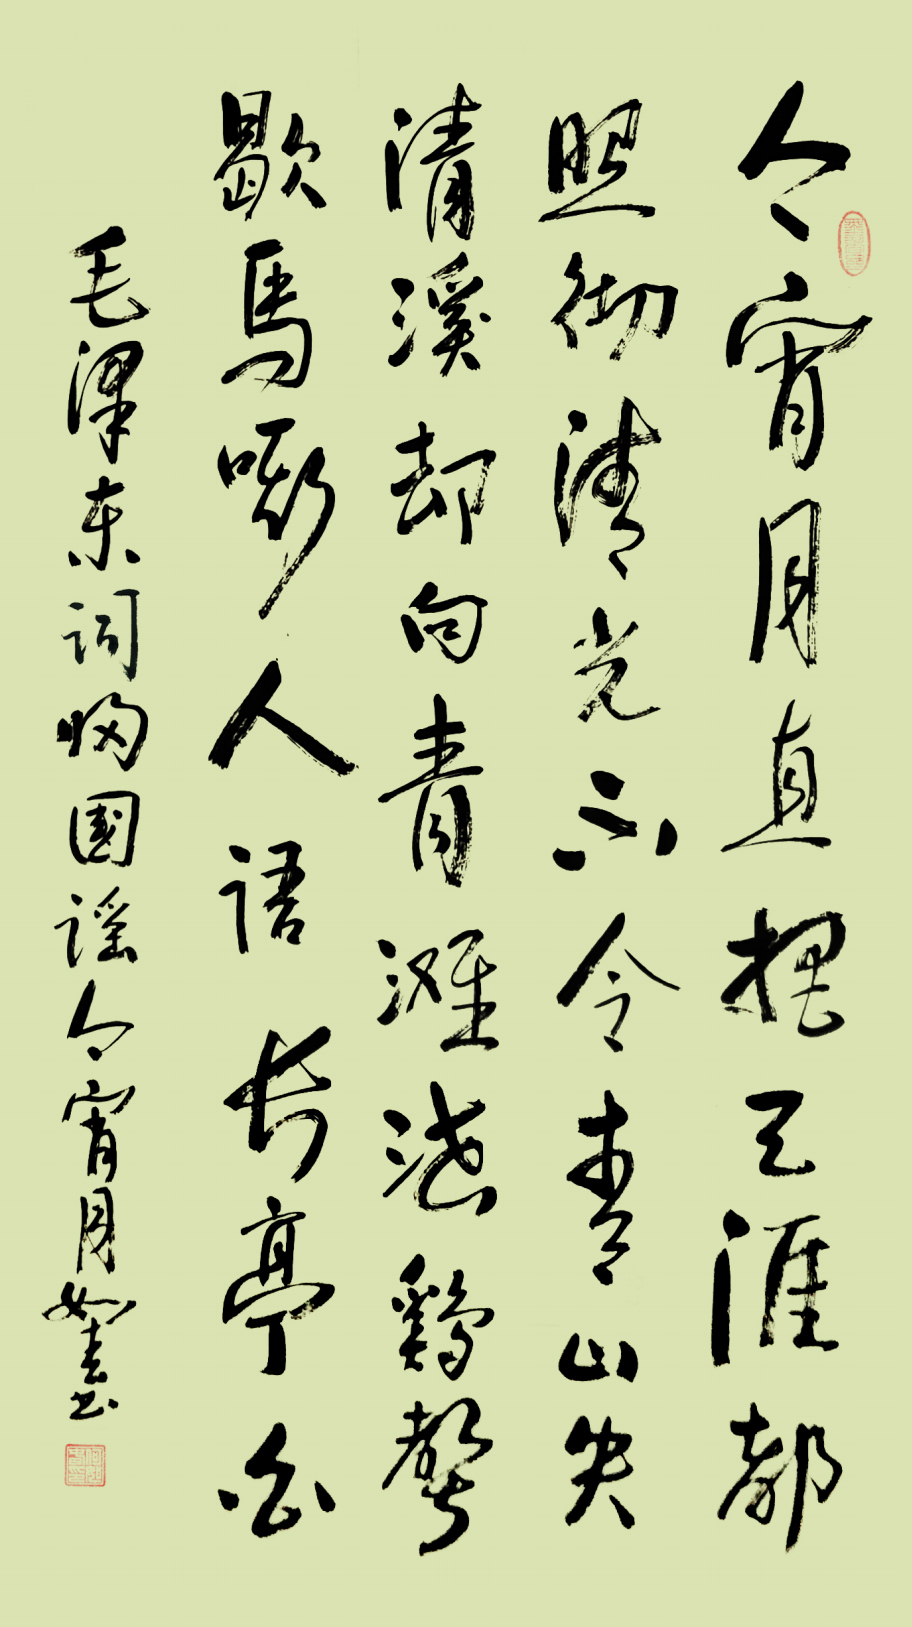 今宵月直把天涯都
照彻清光不令青山失
清溪却向青滩泄鸡声
歇马嘶人语长亭白
毛泽东词归国谣今宵月如春书